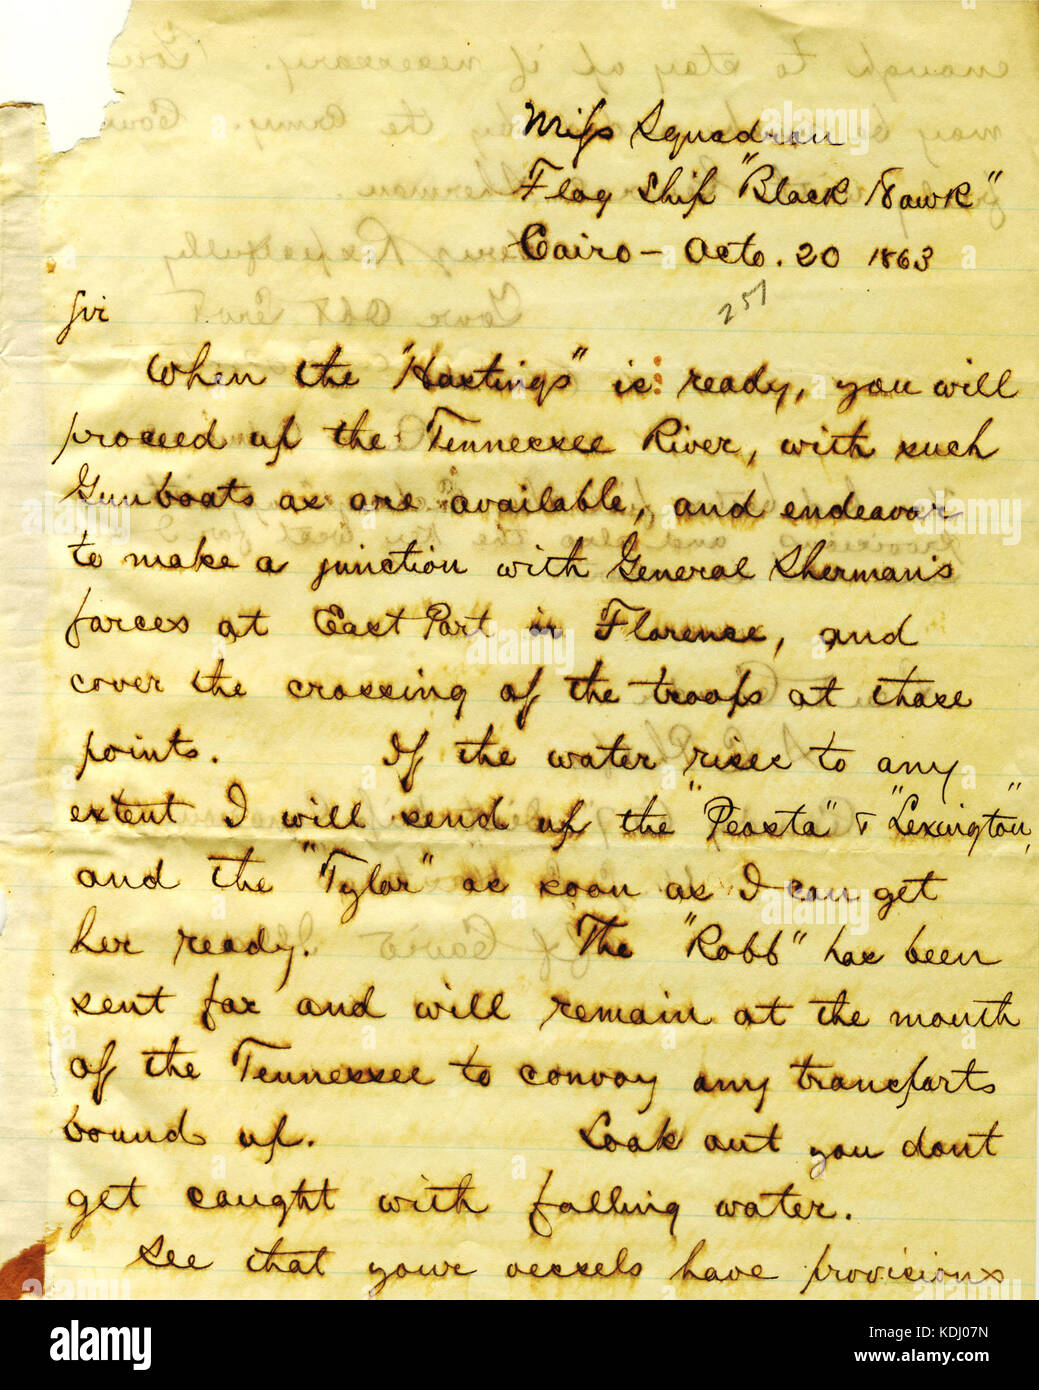 Miss Squadron
Flag Ship "Black Hawk"
Cairo - Octo. 20 1863
251
Sir
When the "Hastings" is ready, you will
proceed up the Tennessee River, with such
Gunboats as are available, and endeavor
to make a junction with General Sherman's
forces at East Port or Florence, and
cover the crossing of the troops at those
points. If the water rises to any
extent I will send up the "Peosta" & "Lexington",
and the "Tylor" as soon as I can get
her ready. The "Robb" has been
sent for and will remain at the mouth
of the Tennessee to convoy any transports
bound up. Look out you dont
get caught with falling water.
See that your vessels have provisions
alamy
Image ID: KDJ07N
www.alamy.com